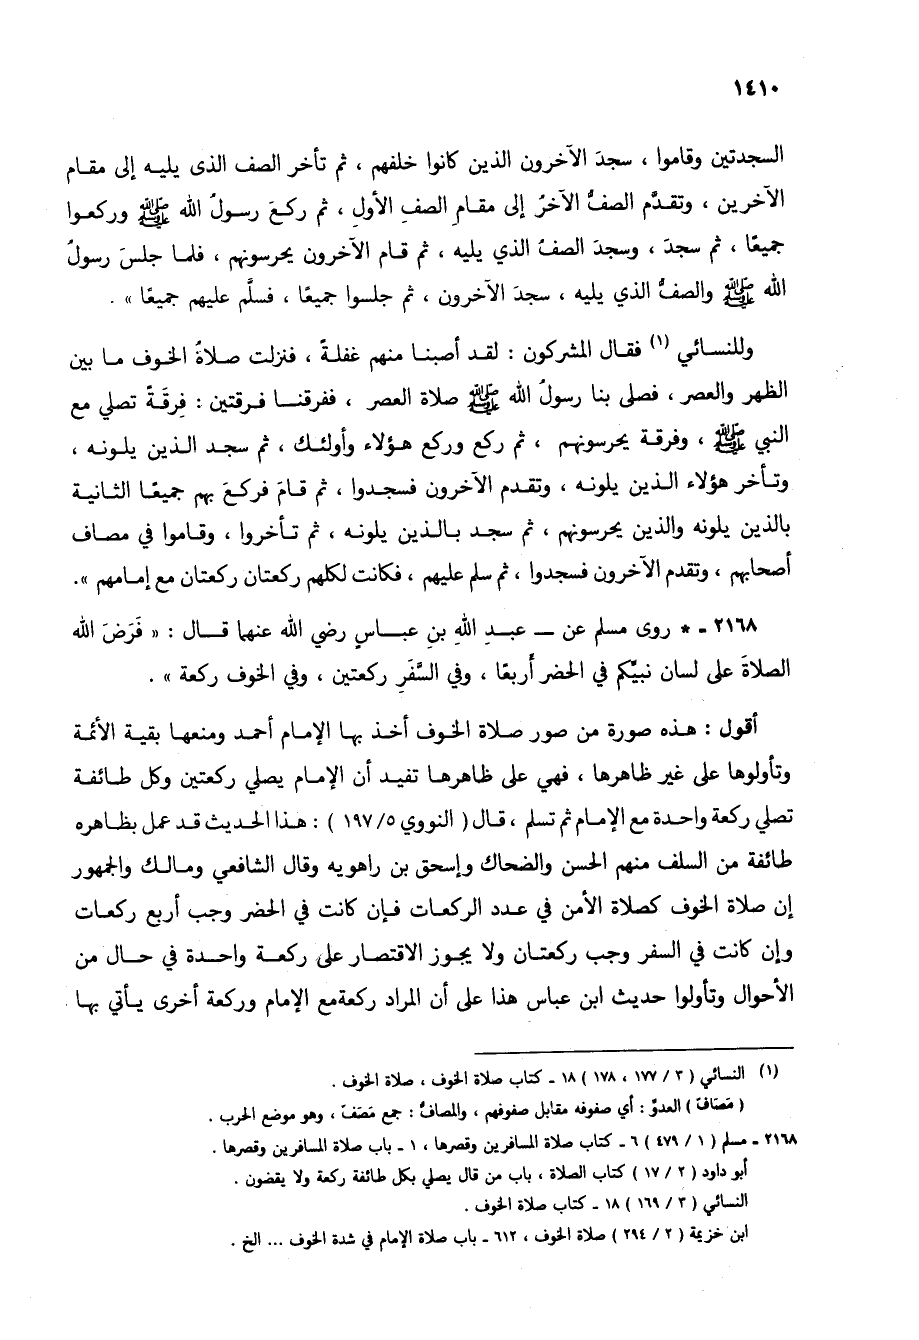 ١٤١٠
السجدتين وقاموا ، سجدَ الآخرون الذين كانوا خلفهم ، ثم تأخر الصف الذى يليه إلى مقام
الآخرين ، وتقدَّم الصفُّ الآخرُ إلى مقامِ الصفِ الأولِ ، ثم ركعَ رسولُ الله ﷺ وركعوا
جميعًا ، ثم سجدَ ، وسجدَ الصفُ الذي يليه ، ثم قام الآخرون يحرسونهم ، فلما جلسَ رسولُ
الله ﷺ والصفُّ الذي يليه ، سجدَ الآخرون ، ثم جلسوا جميعًا ، فسلَّم عليهم جميعًا » .
وللنسائي (١) فقال المشركون : لقد أصبنا منهم غفلةً ، فنزلت صلاةُ الخوف ما بين
الظهر والعصر ، فصلى بنا رسولُ الله ﷺ صلاة العصر ، ففرقنا فرقتين : فِرقَةً تصلي مع
النبي ﷺ ، وفرقة يحرسونهم ، ثم ركع وركع هؤلاء وأولئك ، ثم سجد الذين يلونه ،
وتأخر هؤلاء الذين يلونه ، وتقدم الآخرون فسجدوا ، ثم قامَ فركعَ بهم جميعًا الثانية
بالذين يلونه والذين يحرسونهم ، ثم سجد بالذين يلونه ، ثم تأخروا ، وقاموا في مصاف
أصحابهم ، وتقدم الآخرون فسجدوا ، ثم سلم عليهم ، فكانت لكلهم ركعتان ركعتان مع إمامهم ».
٢١٦٨ - * روى مسلم عن – عبدِ اللهِ بنِ عباسٍ رضي الله عنهما قال : « فَرَضَ الله
الصلاةَ على لسان نبيِّكم في الحضر أربعًا ، وفي السَّفَرِ ركعتين ، وفي الخوف ركعة » .
أقول : هذه صورة من صور صلاة الخوف أخذ بها الإمام أحمد ومنعها بقية الأئمة
وتأولوها على غير ظاهرها ، فهي على ظاهرها تفيد أن الإمام يصلي ركعتين وكل طائفة
تصلي ركعة واحدة مع الإمام ثم تسلم ، قال ( النووي ١٩٧/٥ ) : هذا الحديث قد عمل بظاهره
طائفة من السلف منهم الحسن والضحاك وإسحق بن راهويه وقال الشافعي ومالك والجمهور
إن صلاة الخوف كصلاة الأمن في عدد الركعات فإن كانت في الحضر وجب أربع ركعات
وإن كانت في السفر وجب ركعتان ولا يجوز الاقتصار على ركعة واحدة في حال من
الأحوال وتأولوا حديث ابن عباس هذا على أن المراد ركعة مع الإمام وركعة أخرى يأتي بها
(١) النسائي ( ٣ / ١٧٧ ، ١٧٨ ) ١٨ - كتاب صلاة الخوف ، صلاة الخوف .
( مَصَافَ ) العدوِّ : أي صفوفه مقابل صفوفهم ، والمصافُّ : جمع مَصَفّ ، وهو موضع الحرب .
٢١٦٨ - مسلم ( ١ / ٤٧٩ ) ٦ - كتاب صلاة المسافرين وقصرها ، ١ - باب صلاة المسافرين وقصرها .
أبو داود ( ٢ / ١٧ ) كتاب الصلاة ، باب من قال يصلي بكل طائفة ركعة ولا يقضون .
النسائي ( ٣ / ١٦٩ ) ١٨ - كتاب صلاة الخوف .
ابن خزيمة ( ٢ / ٢٩٤ ) صلاة الخوف ، ٦١٢ - باب صلاة الإمام في شدة الخوف ... الخ .